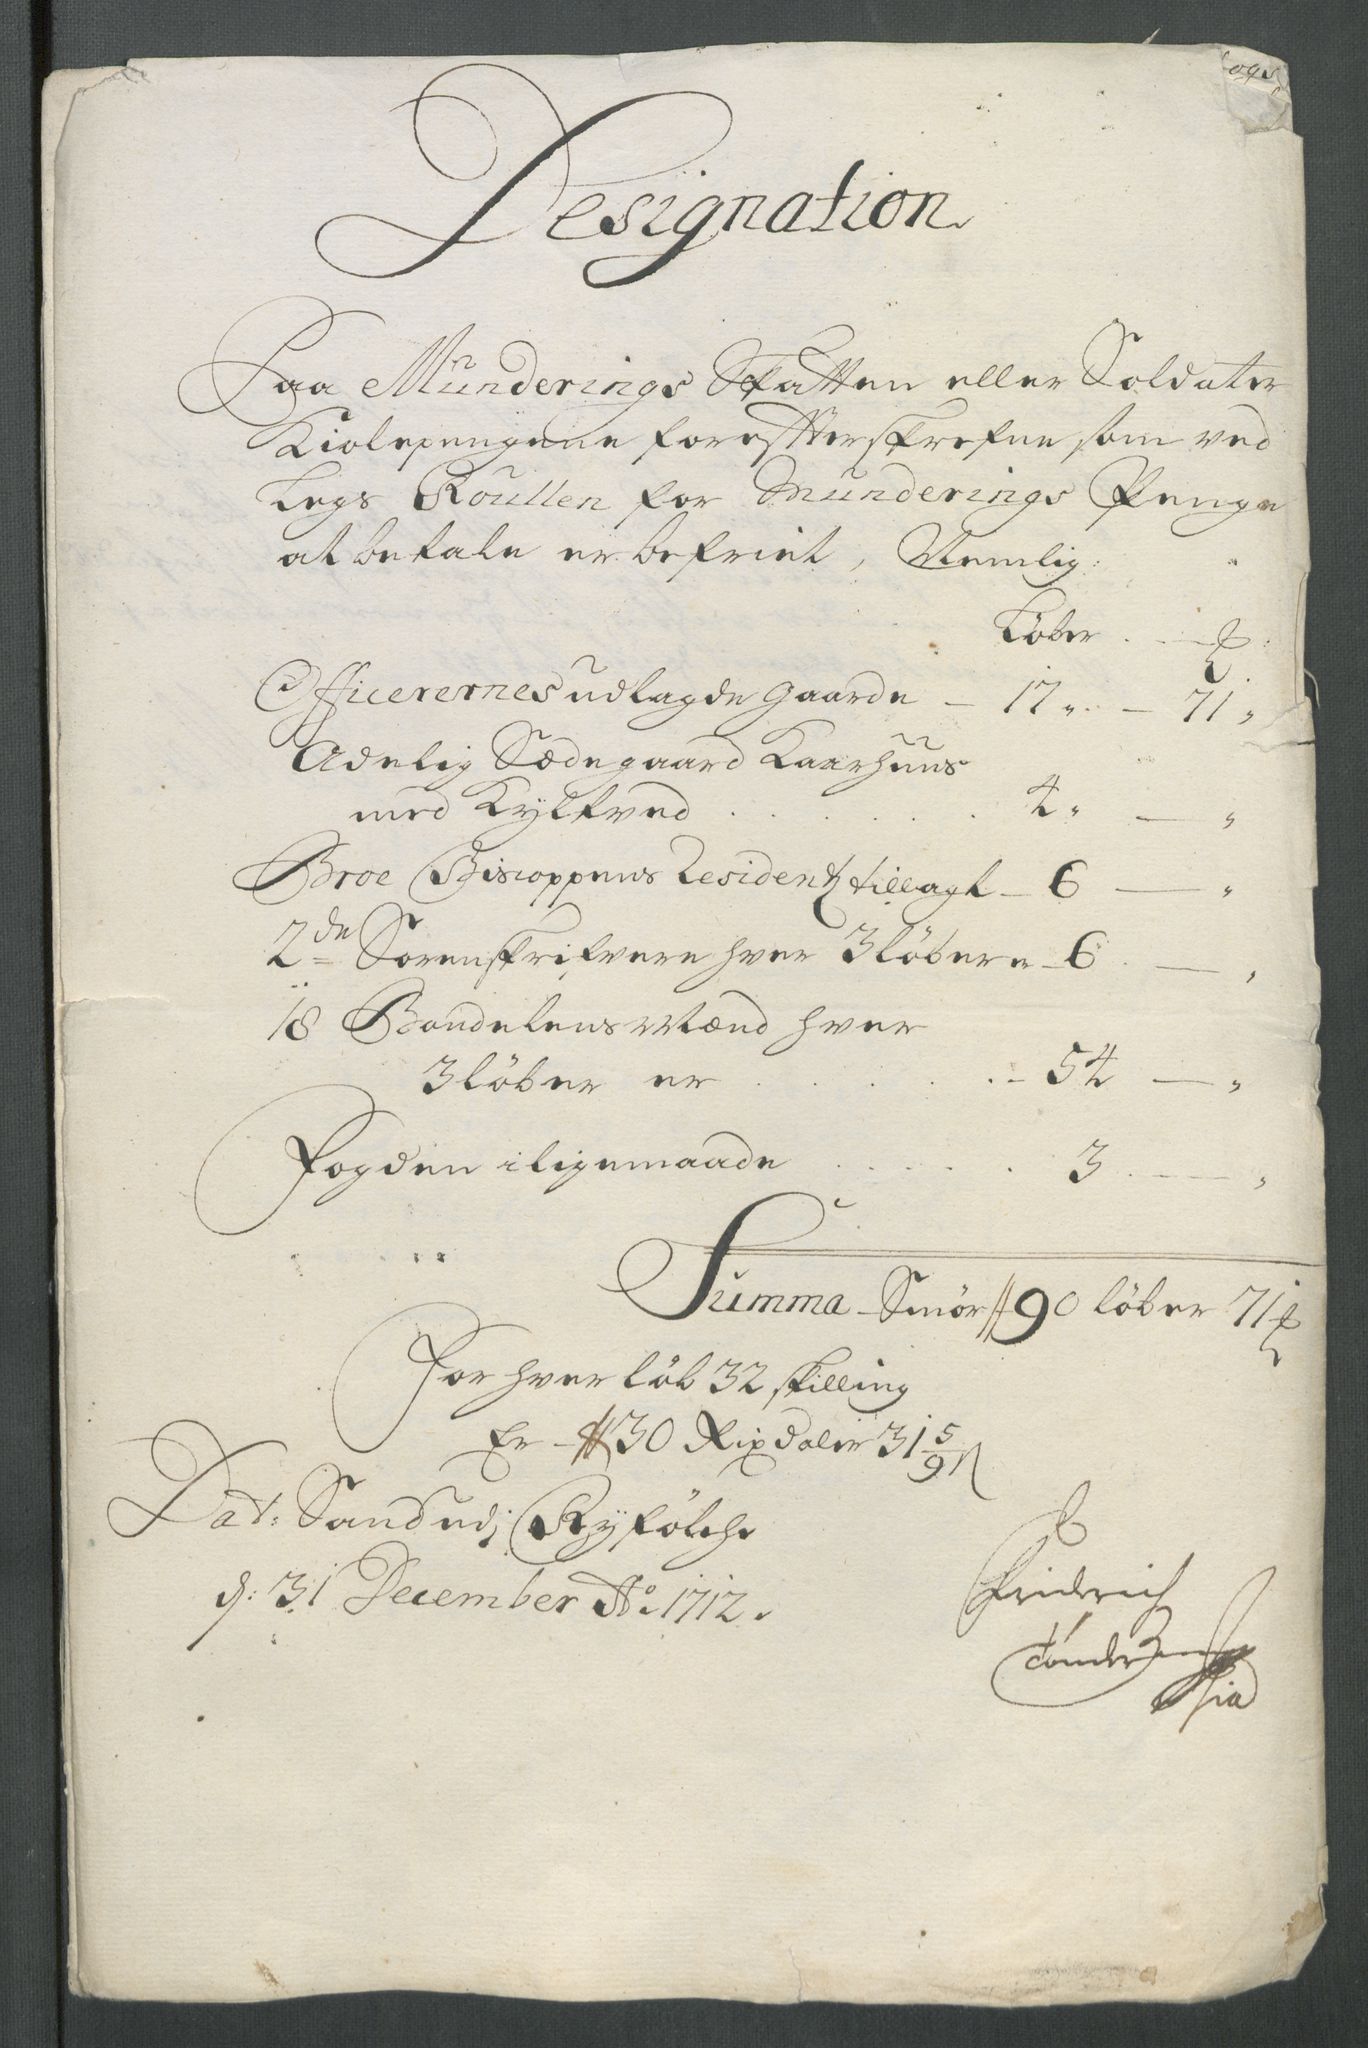 Designation
Paa Münderings Skatten eller Soldater
Kiolepengene forestterskrefne som ved
Legs Roullen for Munderings Penge
at betale er befriet, Nemlig:
Løber . — ℔:
Officerernes udlagde Gaarde — 17 „ — 71 „
Adelig Sædegaard Kaarhuus
med Kylkved . . . . . . 4 „ — „
Broe Biscoppens Residentz tillagt — 6 — „
2de Sorenskrifvere hver 3 løber er — 6 . — „
18 Bondelensmænd hver
3 løber er . . . . . — 54 — „
Fogden i ligemaade . . . . . 3 . — „
Summa Smør // 90 løber 71 ℔
For hver løb 32 skilling
Er — // 30 Rixdaler 31 5/9 s
Dat: Sand udj Ryfölche
d: 31 December Ao. 1712.
Friderich